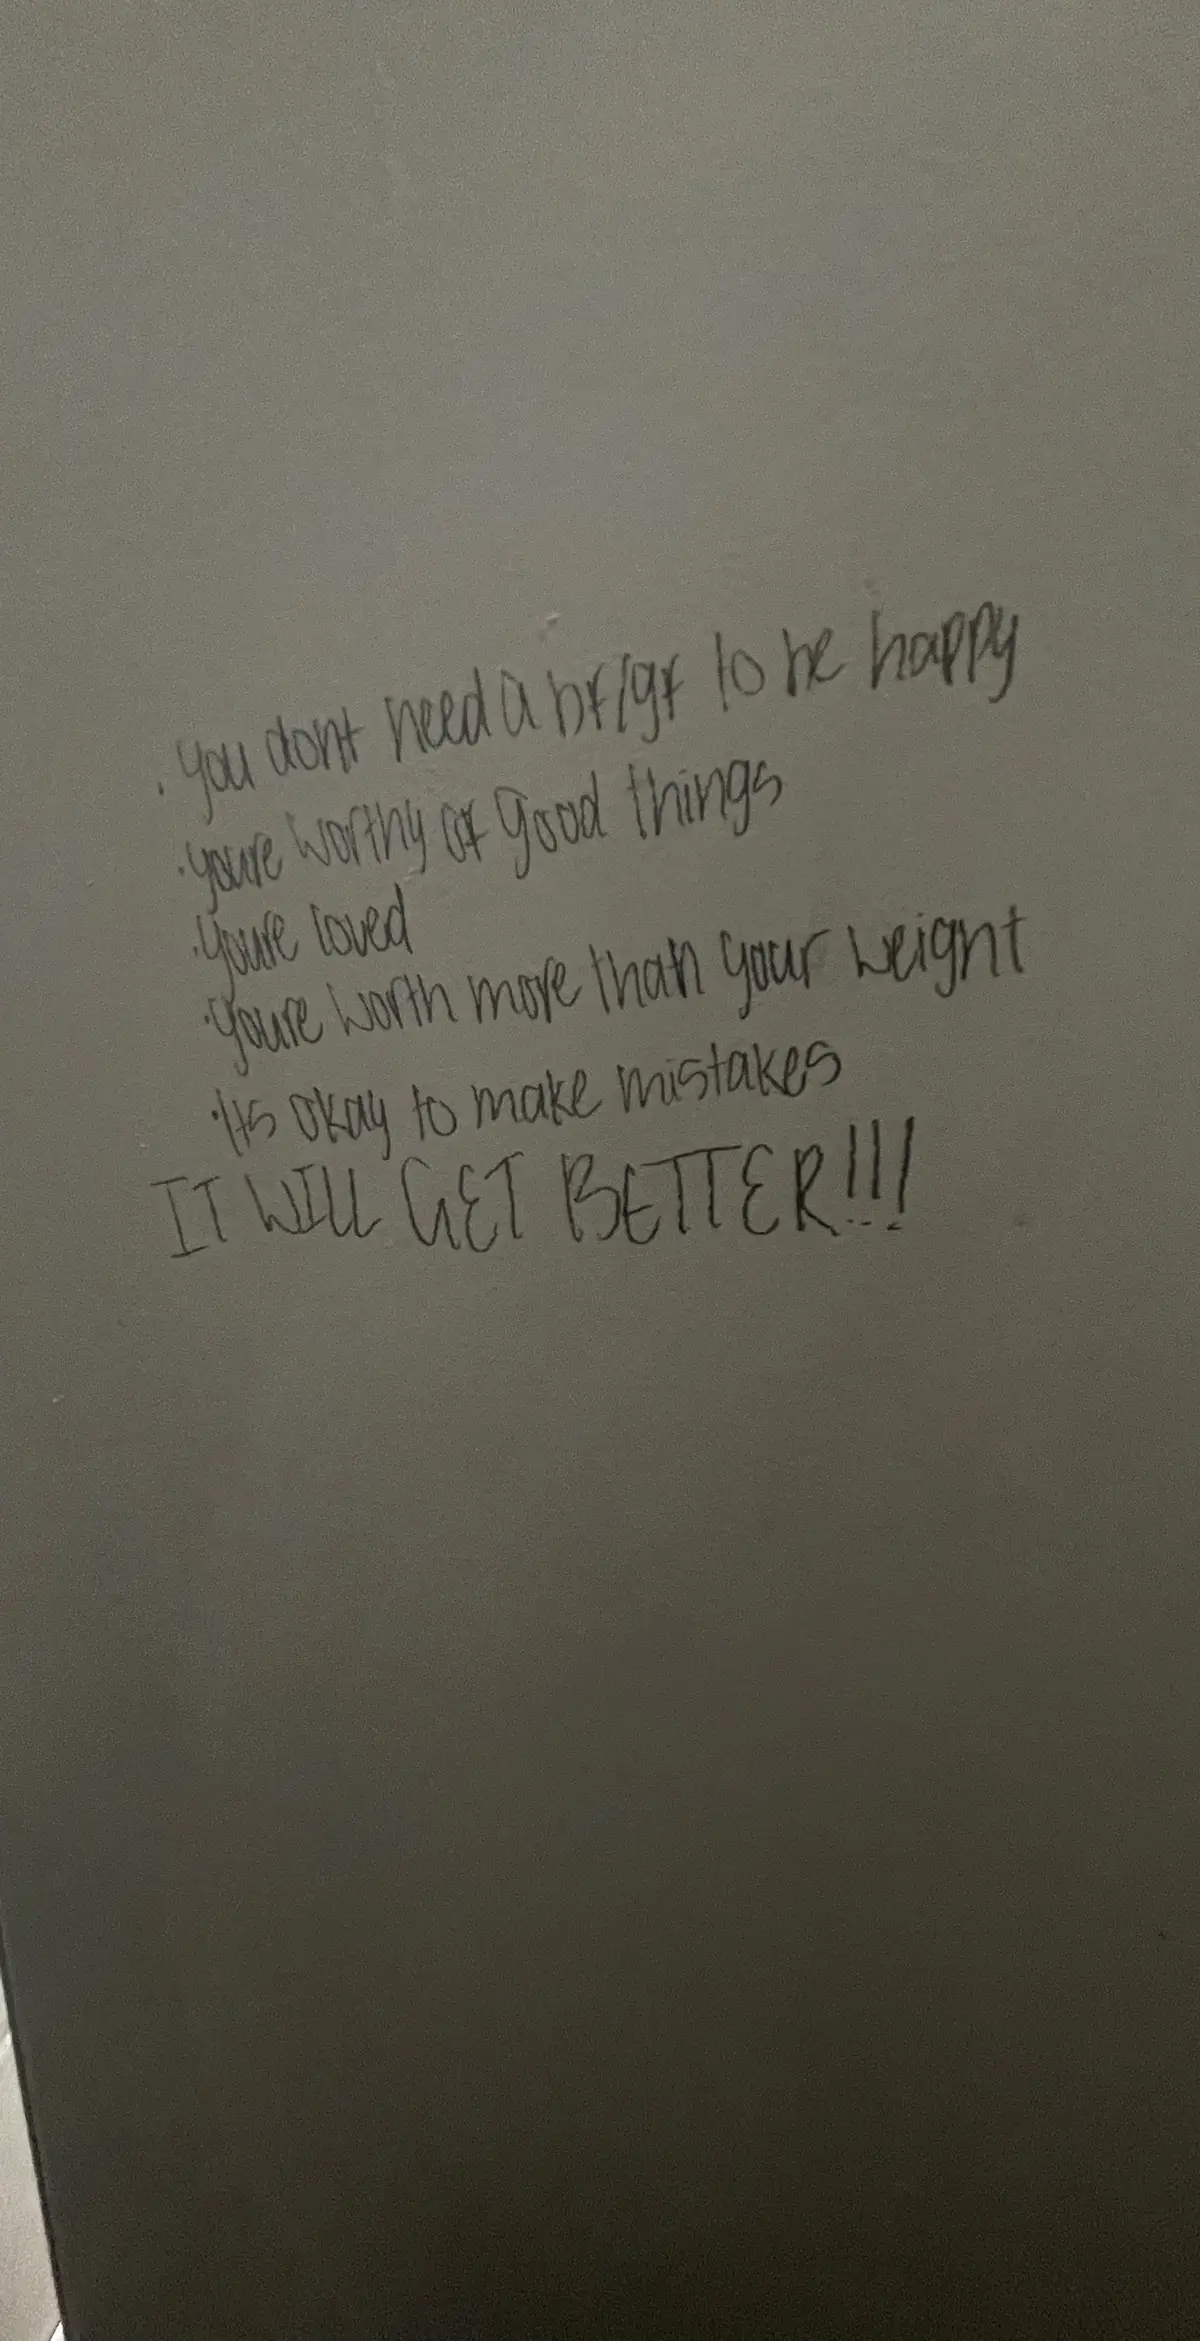 . you dont need a bf/gf to be happy
. youre worthy of good things
. youre loved
. youre worth more than your weight
. Its okay to make mistakes
IT WILL GET BETTER!!!